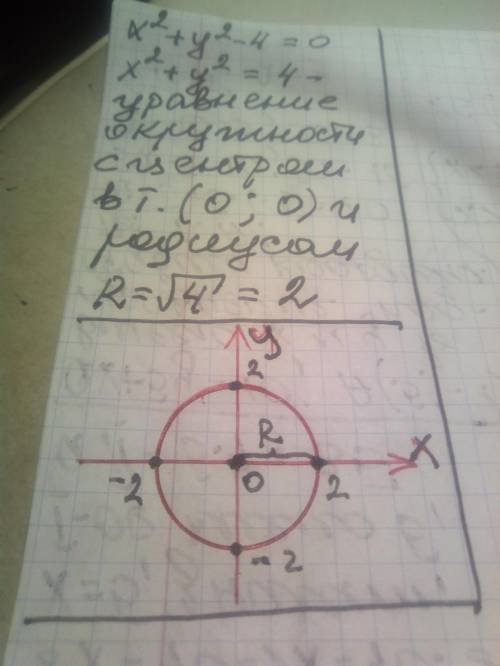 x² + y² - 4 = 0
x² + y² = 4 -
уравнение
окружности
с центром
в т. (0; 0) и
радиусом
R = √4 = 2
y
2
R
x
-2
0
2
-2